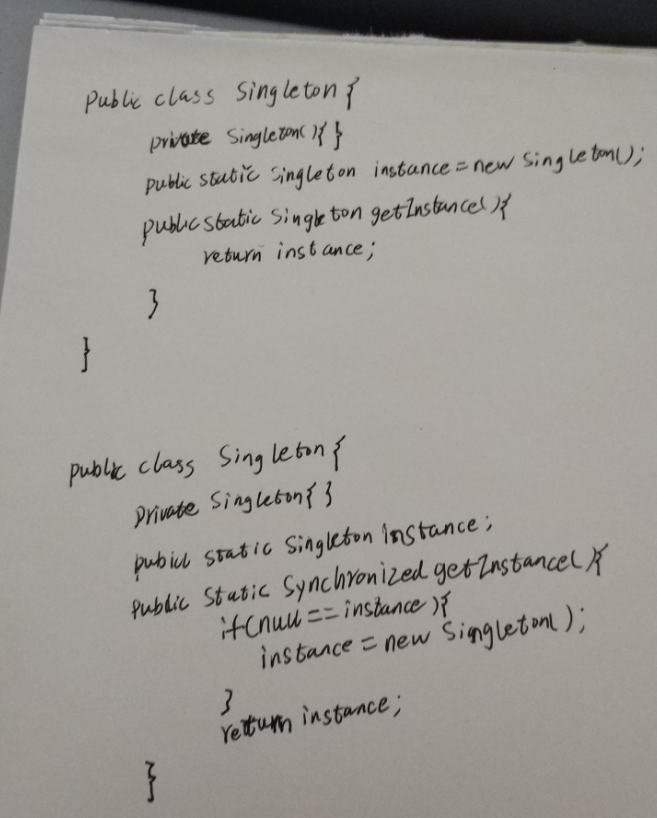 public class Singleton{
private Singleton(){}
public static Singleton instance=new Singleton();
public static Singleton getInstance(){
return instance;
}
}
public class Singleton{
private Singleton{}
pubicl static Singleton instance;
public static Synchronized getInstance(){
if(null==instance){
instance=new Singleton();
}
return instance;
}